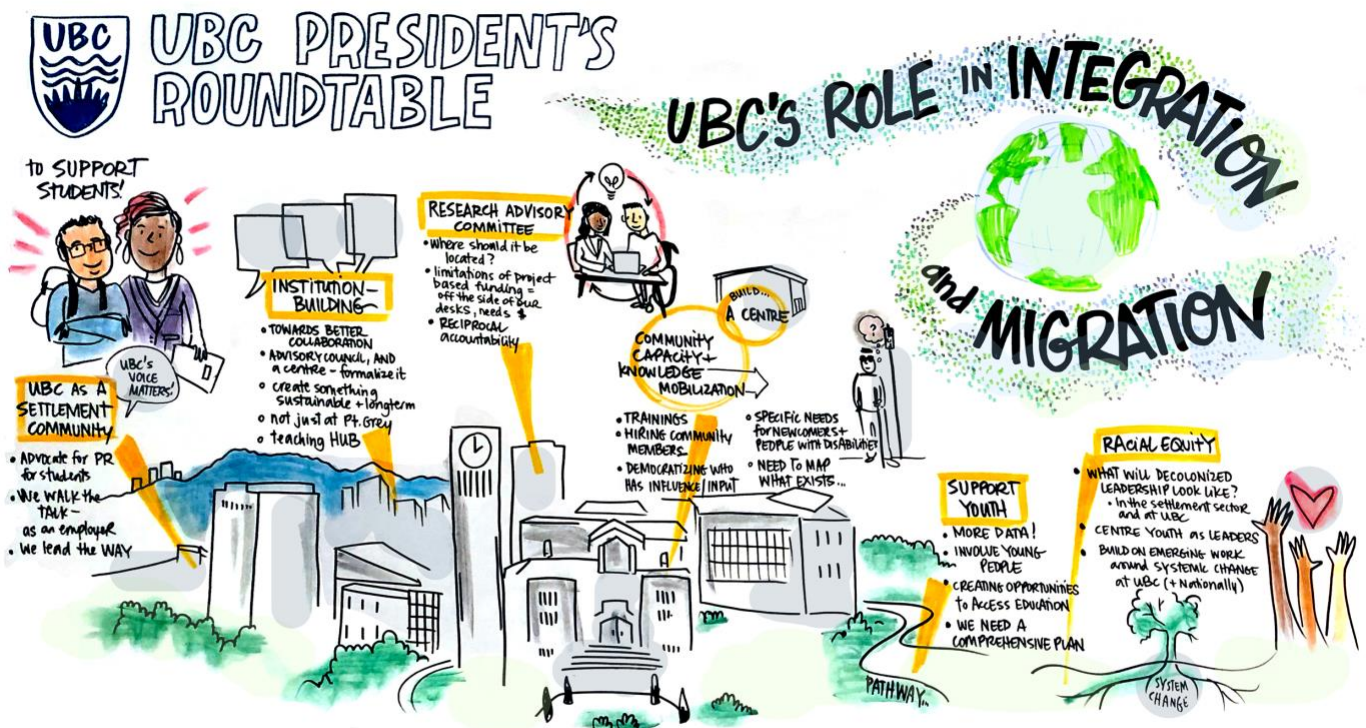 UBC
UBC PRESIDENT'S
ROUNDTABLE
UBC'S ROLE IN INTEGRATION
and MIGRATION
to SUPPORT
STUDENTS!
UBC'S
VOICE
MATTERS!
UBC AS A
SETTLEMENT
COMMUNITY
• ADVOCATE for PR
for students
• WE WALK the
TALK –
as an employer
• we lead the WAY
INSTITUTION-
BUILDING
• TOWARDS BETTER
COLLABORATION
• ADVISORY COUNCIL, AND
a centre – formalize it
• create something
sustainable + longterm
• not just at Pt. Grey
• teaching HUB
RESEARCH ADVISORY
COMMITTEE
• Where should it be
located?
• limitations of project
based funding =
off the side of our
desks, needs $
• RECIPROCAL
accountability
BUILD...
A CENTRE
COMMUNITY
CAPACITY +
KNOWLEDGE
MOBILIZATION
• TRAININGS
• HIRING COMMUNITY
MEMBERS
• DEMOCRATIZING WHO
HAS INFLUENCE/INPUT
• SPECIFIC NEEDS
for NEWCOMERS +
PEOPLE WITH DISABILITIES
• NEED TO MAP
WHAT EXISTS...
?
SUPPORT
YOUTH
• MORE DATA!
• INVOLVE YOUNG
PEOPLE
• CREATING OPPORTUNITIES
to ACCESS EDUCATION
• WE NEED A
COMPREHENSIVE PLAN
PATHWAY...
RACIAL EQUITY
• WHAT WILL DECOLONIZED
LEADERSHIP LOOK LIKE?
• in the settlement sector
and at UBC
• CENTRE YOUTH as LEADERS
• BUILD ON EMERGING WORK
around SYSTEMIC CHANGE
at UBC (+ Nationally)
SYSTEM
CHANGE